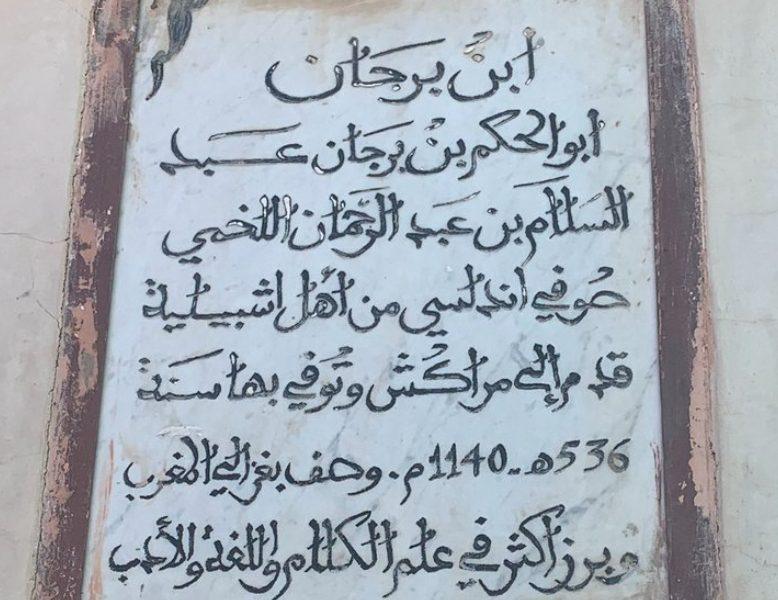 ابن برجان
ابو الحكم بن برجان عبد
السلام بن عبد الرحمان اللخمي
صوفي اندلسي من أهل اشبيلية
قدم إلى مراكش وتوفي بها سنة
536هـ - 1140م. وصف بغزالي المغرب
وبرز اكثر في علم الكلام واللغة والأدب